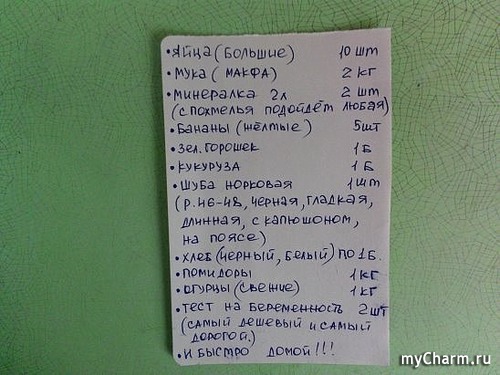 •Яйца (большие) 10 шт
•Мука (макфа) 2 кг
•Минералка 2л 2 шт
(с похмелья подойдёт любая)
•Бананы (жёлтые) 5шт
•Зел. горошек 1 б
•Кукуруза 1 б
•Шуба норковая 1шт
(р. 46-48, черная, гладкая,
длинная, с капюшоном,
на поясе)
•Хлеб (черный, белый) по 1б.
•Помидоры 1кг
•Огурцы (свежие) 1 кг
•Тест на беременность 2 шт
(самый дешевый и самый
дорогой.)
•И быстро домой!!!
myCharm.ru